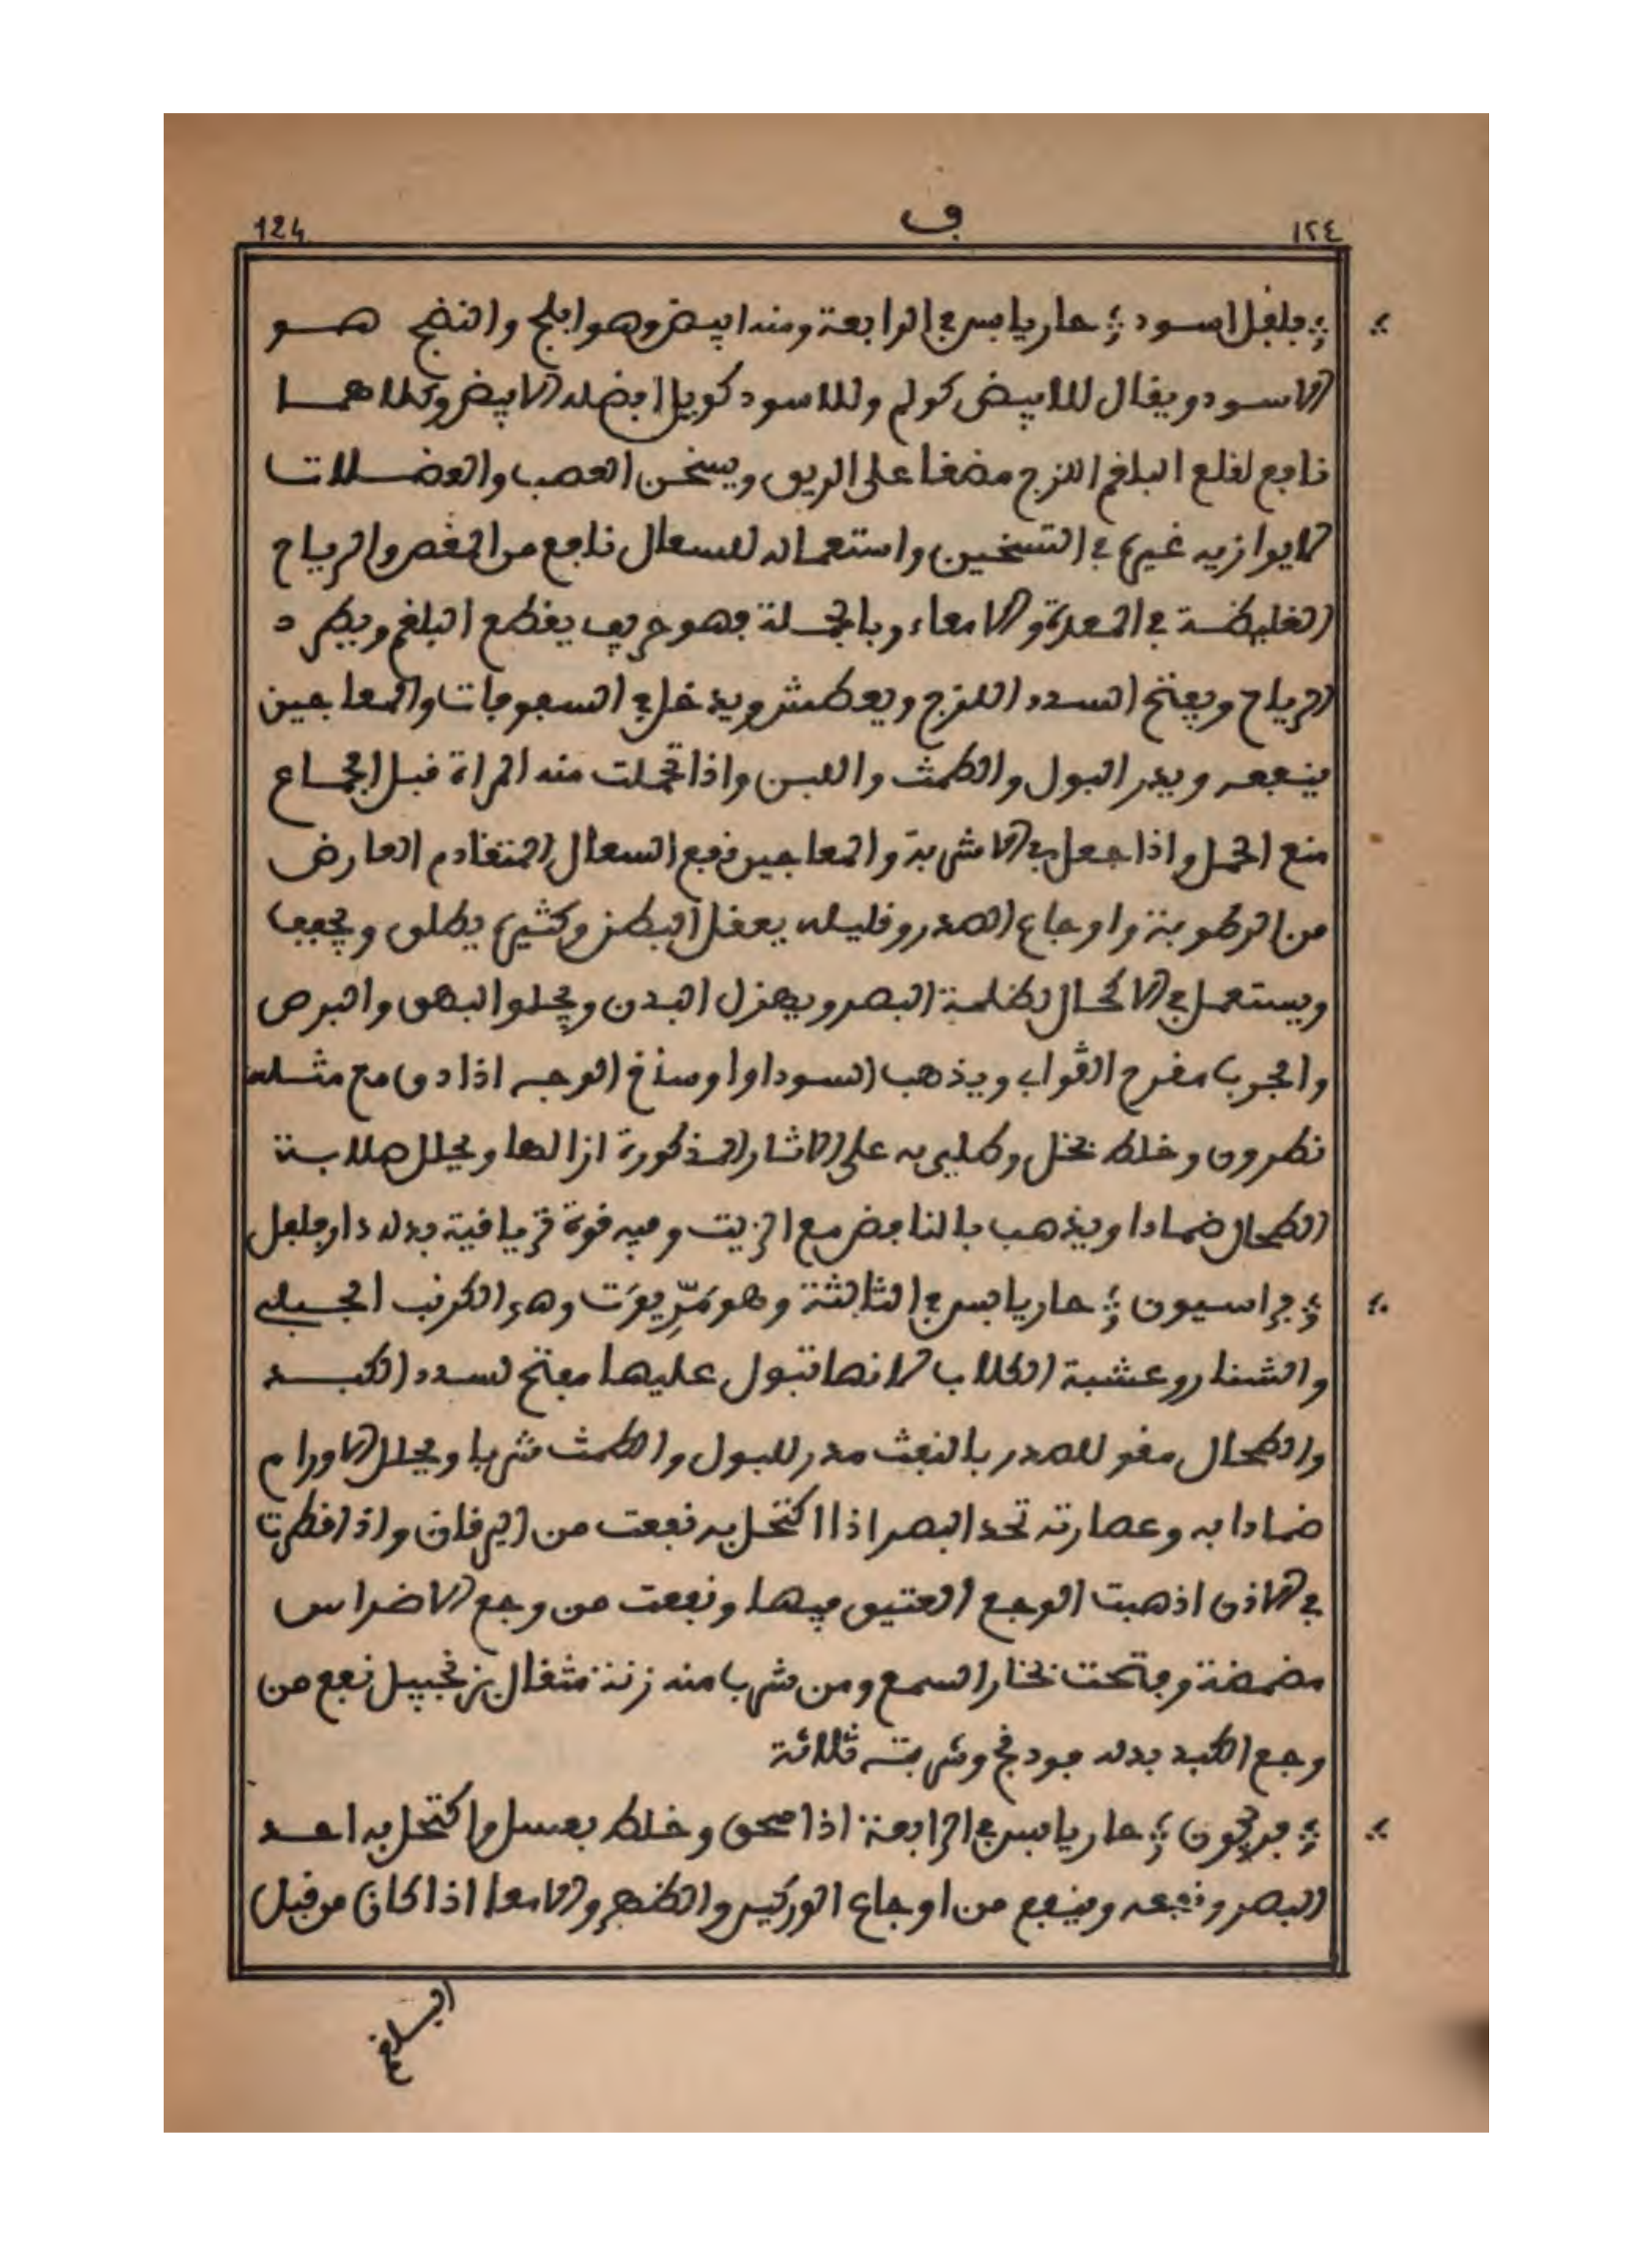 124 ف ١٢٤
؛ فلفل اسود ؛ حار يابس في الرابعة ومنه ابيض وهو افلج والنضج هو
الاسود ويقال للابيض كولم وللاسود كويل افضله الابيض وكلاهما
نافع لقلع البلغم اللزج مضغا على الريق ويسخن العصب والعضلات
لا يوازيه غيره في التسخين واستعماله للسعال نافع من المغص والرياح
الغليظة في المعدة والامعاء وبالجملة فهو حريف يقطع البلغم ويطرد
الرياح ويفتح السدد اللزج ويعطش ويدخل في السفوفات والمعاجين
فينفعه ويدر البول والطمث واللبن واذا تحملت منه المراة قبل الجماع
منع الحمل واذا جعل في الاشربة والمعاجين نفع السعال المتقادم العارض
من الرطوبة واوجاع الصدر وقليله يعقل البطن وكثيره يطلق ويجفف
ويستعمل في الاكحال لظلمة البصر ويهزل البدن ويجلوا البهق والبرص
والجرب مقرح القواب ويذهب السودا واوساخ الوجه اذا دق مع مثله
نطرون وخلط بخل وطلي به على الاثار المذكورة ازالها ويحلل صلابة
الطحال ضمادا ويذهب بالنافض مع الزيت وفيه قوة ترياقية بدله دارفلفل
؛ فراسيون ؛ حار يابس في الثالثة وهو مَرِّيوَت وهو الكرنب الجبلي
والشنار وعشبة الكلاب لانها تبول عليها مفتح لسدد الكبد
والطحال مقو للصدر بالنفث مدر للبول والطمث شربا ويحلل الاورام
ضمادا به وعصارته تحد البصر اذا اكتحل به نفعت من اليرقان واذا قطرت
في الاذن اذهبت الوجع العتيق فيها ونفعت من وجع الاضراس
مضمضة وفتحت بخار السمع ومن شرب منه زنة مثقال بزنجبيل نفع من
وجع الكبد بدله فودنج وشربته ثلاثة
؛ فربيون ؛ حار يابس في الرابعة اذا سحق وخلط بعسل واكتحل به احد
البصر ونفعه وينفع من اوجاع الوركين والظهر والامعا اذا كان من قبل
البلغم